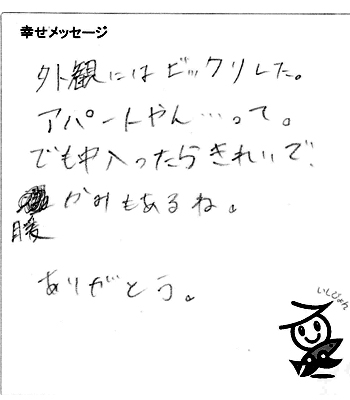 幸せメッセージ
外観にはビックリした。
アパートやん…って。
でも中入ったらきれいで!
暖かみもあるね。
ありがとう。
いしぴょん